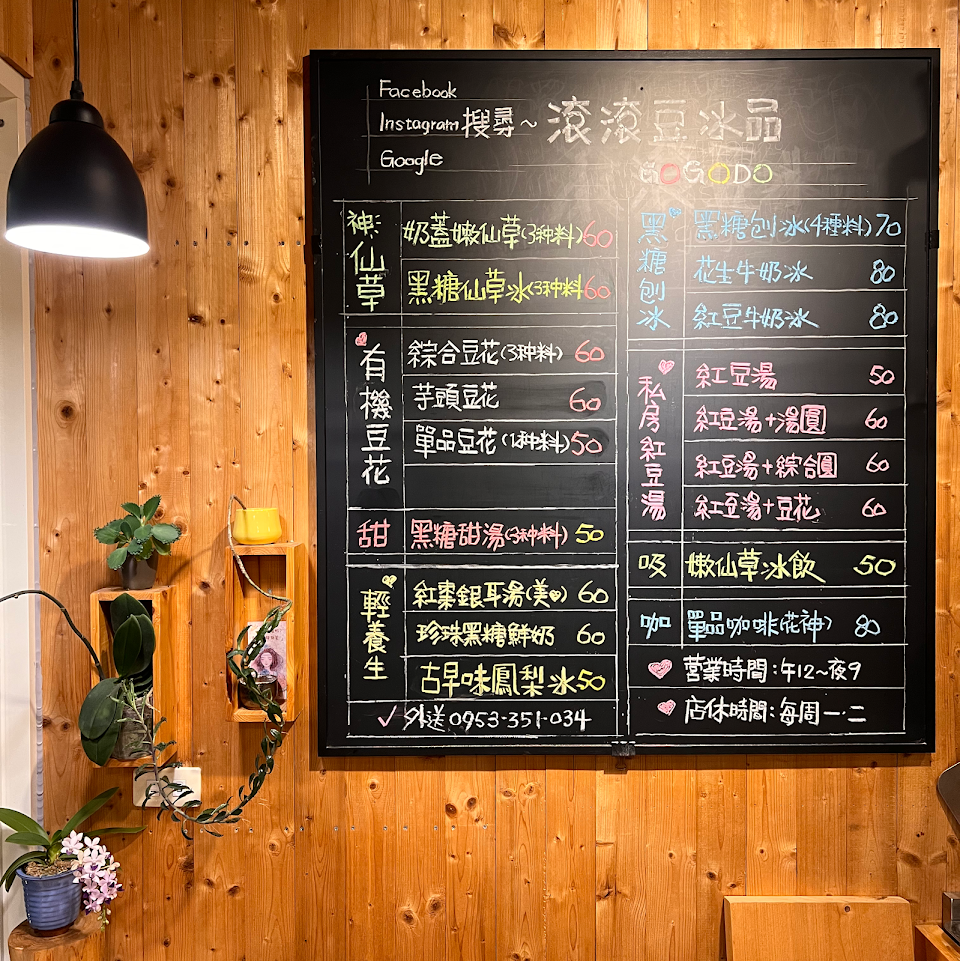 Facebook
Instagram 搜尋~ 滾滾豆冰品
Google
GOGODO
神仙草
奶蓋嫩仙草(3种料) 60
黑糖仙草冰(3种料 60
有機豆花
綜合豆花(3种料) 60
芋頭豆花 60
單品豆花(1种料) 50
甜
黑糖甜湯(3种料) 50
輕養生
紅棗銀耳湯(美) 60
珍珠黑糖鮮奶 60
古早味鳳梨冰 50
外送 0953-351-034
黑糖刨冰
黑糖刨冰(4種料) 70
花生牛奶冰 80
紅豆牛奶冰 80
私房紅豆湯
紅豆湯 50
紅豆湯+湯圓 60
紅豆湯+綜合圓 60
紅豆湯+豆花 60
吸
嫩仙草冰飲 50
咖
單品咖啡(花神) 80
營業時間:午12~夜9
店休時間:每周一·二